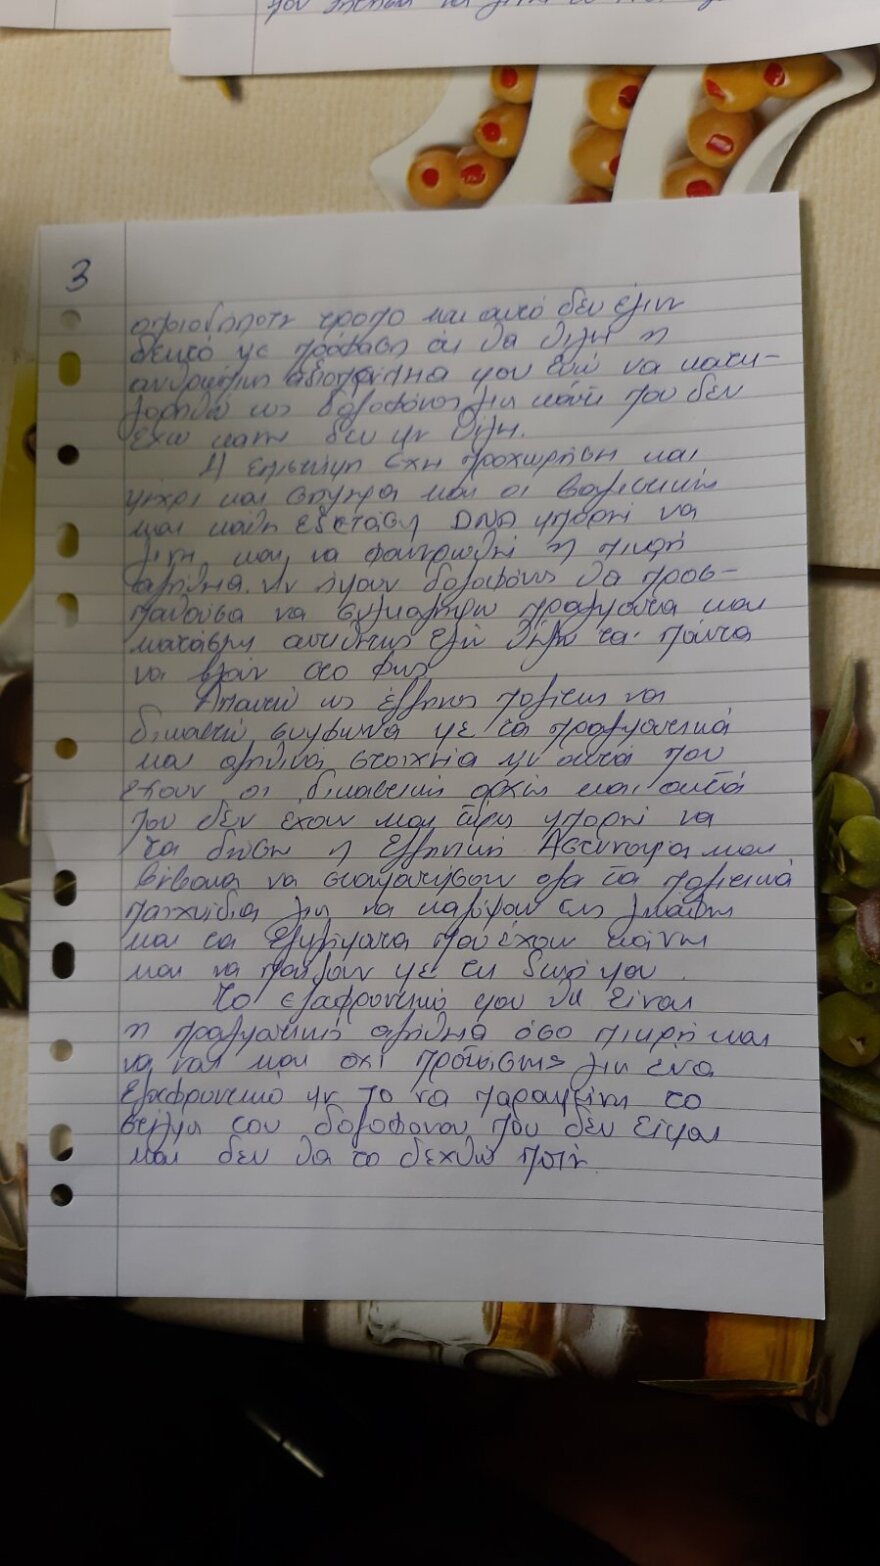 3
οποιοδήποτε τρόπο και αυτό δεν έγινε
δεκτό με πρόφαση ότι θα θιγεί η
ανθρώπινη αξιοπρέπεια μου ενώ να κατη-
γορηθώ ως δολοφόνος για κάτι που δεν
έχω κάνει δεν με θίγει.
Η επιστήμη έχει προχωρήσει και
μέχρι και σήμερα και οι
και κάθε εξέταση DNA μπορεί να
γίνει και να φανερωθεί η πικρή
αλήθεια. αν ήμουν δολοφόνος θα προσ-
παθούσα να συγκαλύψω πράγματα και
αντιθέτως εγώ θέλω τα πάντα
να βγουν στο φως
Απαιτώ ως έλληνας πολίτης να
δικαστώ σύμφωνα με τα πραγματικά
και αληθινά στοιχεία με αυτά που
έχουν οι δικαστικές αρχές και αυτά
που δεν έχουν και μπορεί να
τα δώσει η Ελληνική Αστυνομία και
βέβαια να σταματήσουν όλα τα πολιτικά
παιχνίδια για να καλύψουν τις
και τα που έχουν κάνει
και να παίζουν με τη ζωή μου.
Το ελαφρυντικό μου θα είναι
η πραγματική αλήθεια όσο πικρή και
να ναι και όχι προτάσεις για ένα
ελαφρυντικό με το να παραμείνει το
στίγμα του δολοφόνου που δεν είμαι
και δεν θα το δεχθώ ποτέ.